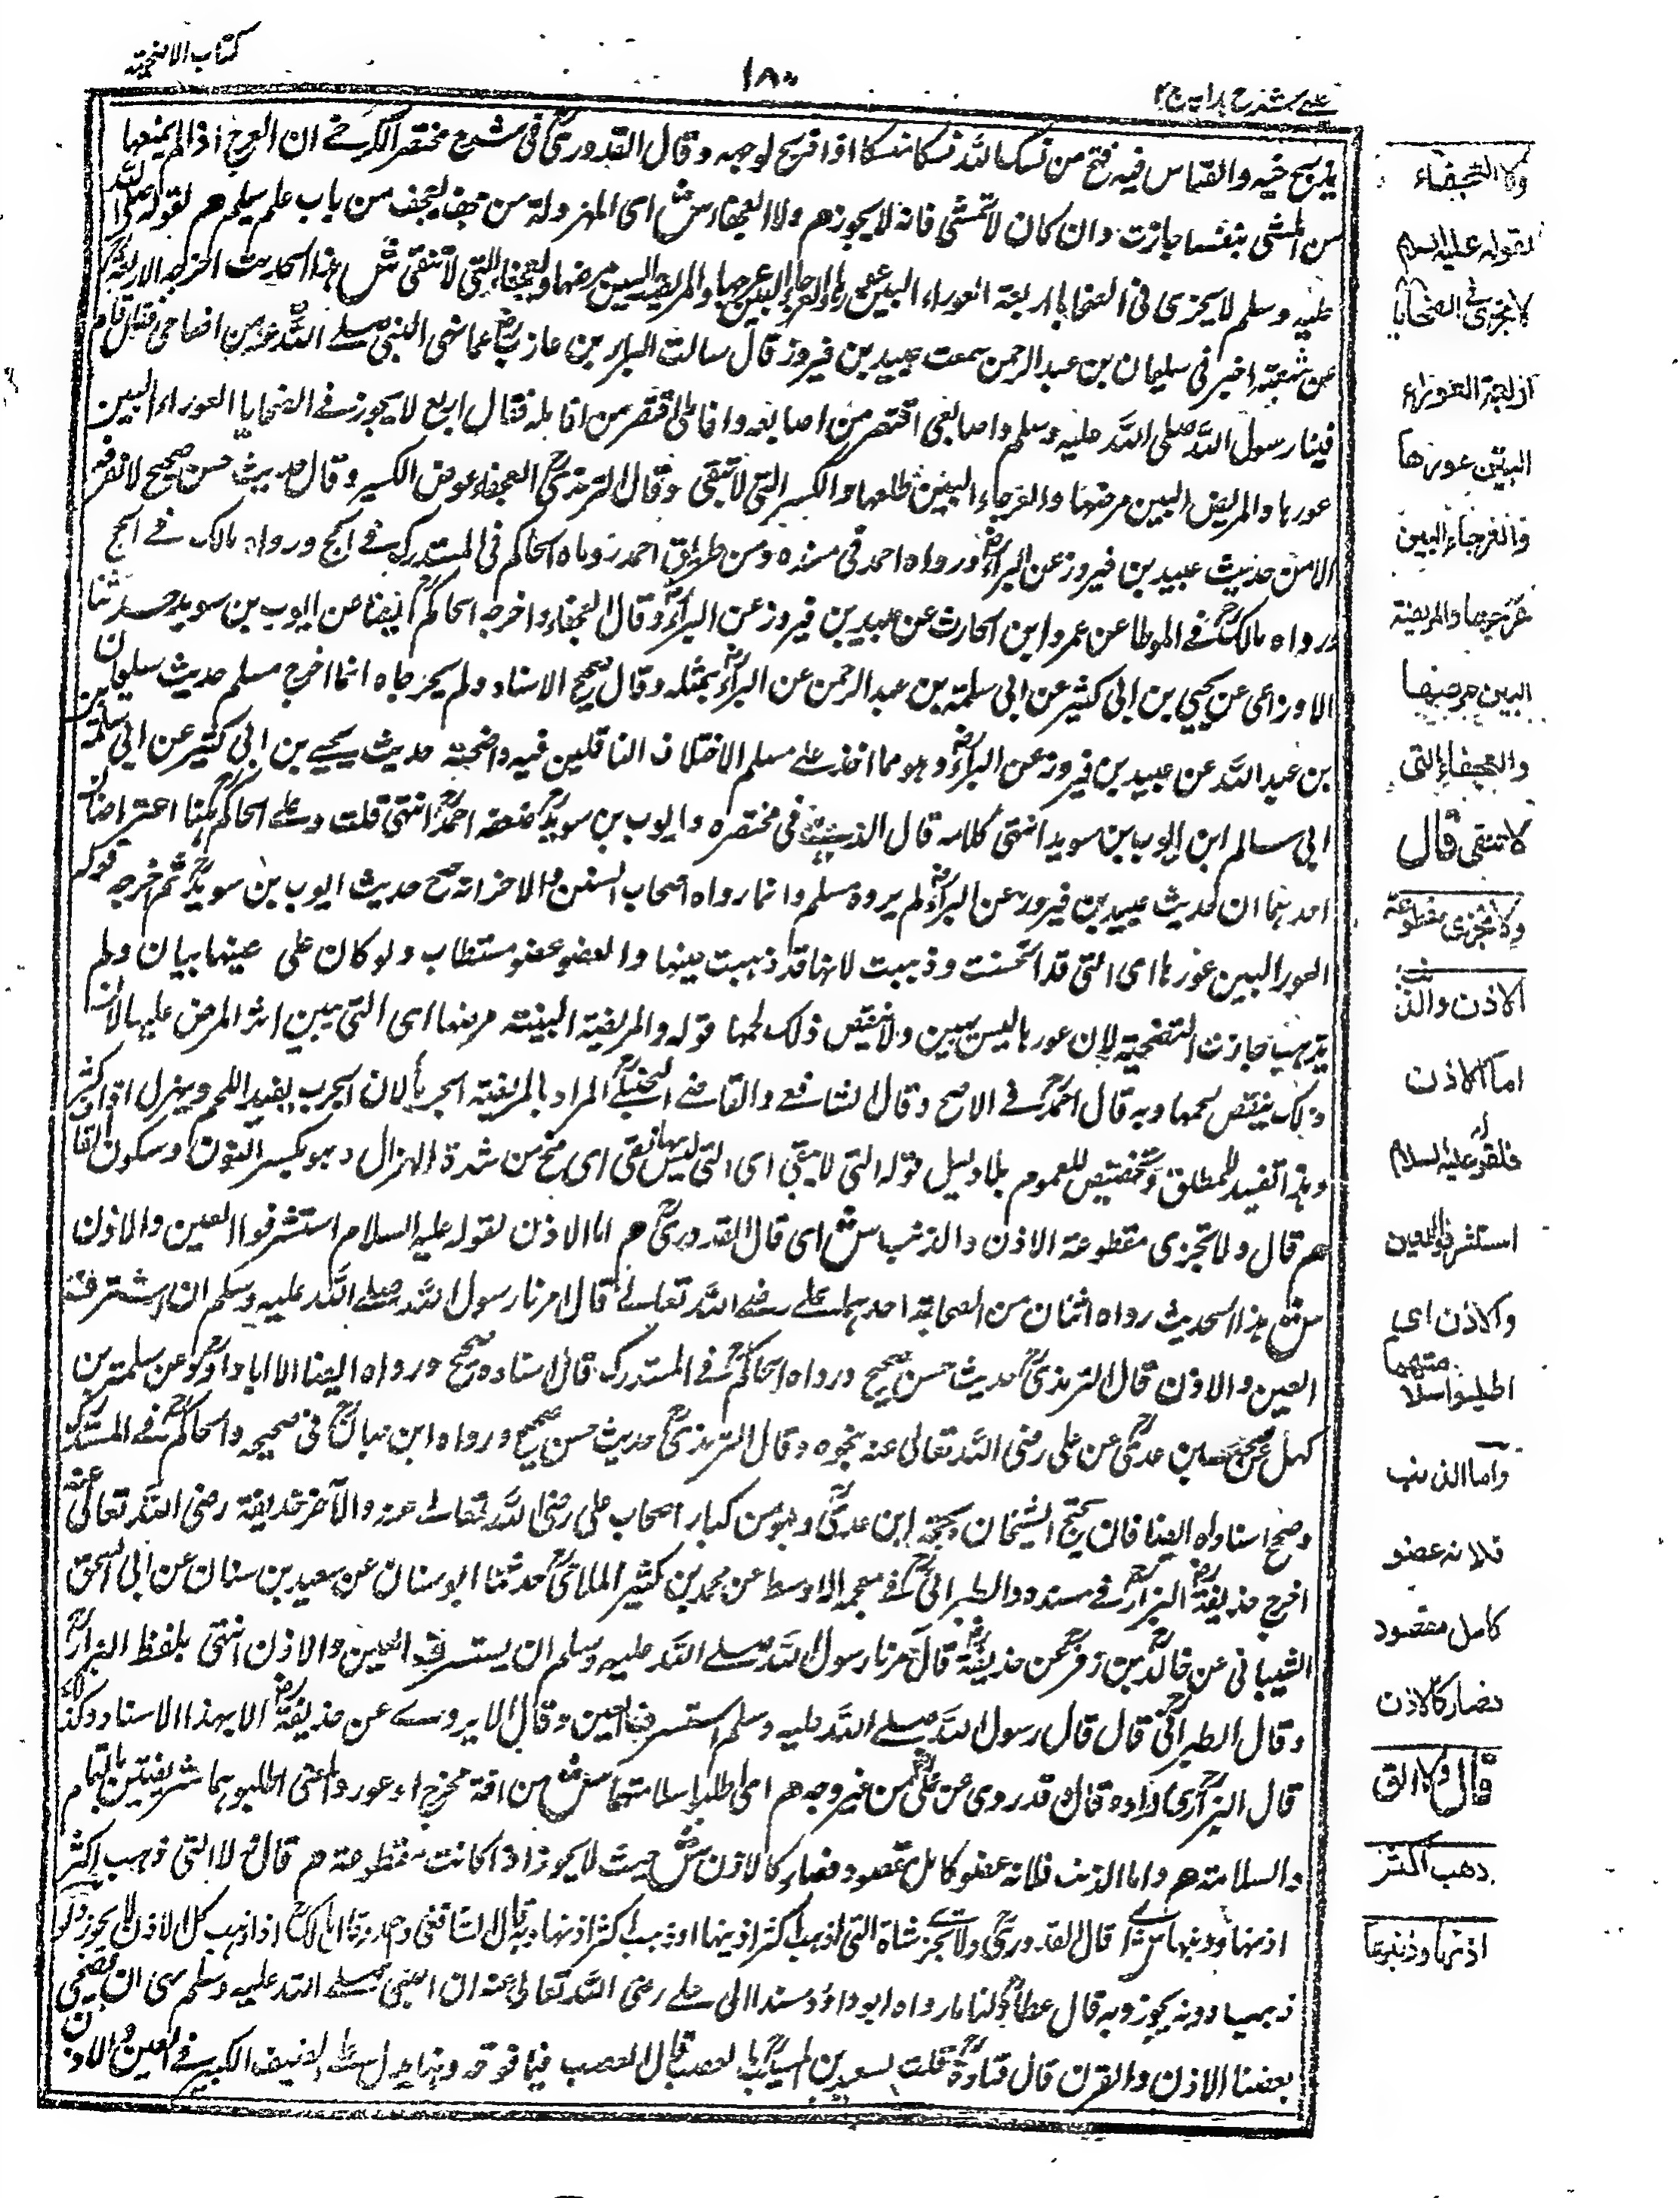 كتاب الاضحية
١٨٠
عيني شرح هداية ج ٤
يذبح فيه والقياس فيه فتح من نسك لله نسكا منسكا اذا ذبح لوجهه وقال القدوري في شرح مختصر الكرخي ان العرج اذا لم يمنعها
من المشي بنفسها جازت وان كان لا تمشي فانه لا يجوز هم ولا العجفاء ش اى المهزولة من عجف يعجف من باب علم يعلم هم لقوله صلى الله
عليه وسلم لا يجزى فى الضحايا اربعة العوراء البين عورها والعرجاء البين عرجها والمريضة البين مرضها والعجفاء التي لا تنقى ش هذا الحديث اخرجه الاربعة
عن شعبة اخبرنى سليمان بن عبد الرحمن سمعت عبيد بن فيروز قال سالت البراء بن عازب عما نهى النبي صلى الله عنه من الاضاحي فقال قام
فينا رسول الله صلى الله عليه وسلم واصابعى اقتصر من اصابعه وانا ملى اقصر من انامله فقال اربع لا يجوز فى الضحايا العوراء البين
عورها والمريض البين مرضها والعرجاء البين ظلعها والكسير التى لا تنقى وقال الترمذي العجفاء عوض الكسير وقال حديث حسن صحيح لا نعرفه
الا من حديث عبيد بن فيروز عن البراء ورواه احمد فى مسنده ومن طريق احمد رواه الحاكم فى المستدرك فى الحج ورواه مالك فى الحج
ورواه مالك فى الموطا عن عمرو ابن الحارث عن عبيد بن فيروز عن البراء وقال العجفاء واخرجه الحاكم ايضا عن ايوب بن سويد حدثنا
الاوزاعى عن يحيى بن ابى كثير عن ابى سلمة بن عبد الرحمن عن البراء بمثله وقال صحيح الاسناد ولم يخرجاه انما اخرج مسلم حديث سليمان
بن عبد الله عن عبيد بن فيروز عن البراء وهو مما اخذ على مسلم الاختلاف الناقلين فيه واضحته حديث يحيى بن ابى كثير عن ابى سلمة
ابى سالم ابن ايوب بن سويد انتهى كلامه قال الذهبى فى مختصره وايوب بن سويد ضعفه احمد انتهى قلت وعلى الحاكم هنا اعتراضان
احدهما ان حديث عبيد بن فيروز عن البراء لم يروه مسلم وانما رواه اصحاب السنن والاخر انه صحح حديث ايوب بن سويد ثم اخرجه قوله
العور البين عورها اى التى قد انخسفت وذهبت لانها قد ذهبت عينها والعضو عضو مستطاب ولو كان على عينها بياض ولم
يذهب جازت التضحية لان عورها ليس ببين ولا ينقص ذلك لحمها قوله والمريضة البينة مرضها اى التى يبين اثر المرض عليها لان
ذلك ينقص لحمها وبه قال احمد فى الاصح وقال الشافعى والقاضى الحنبلى المراد بالمريضة الجرباء لان الجرب يفسد اللحم ويهزل اذا كثر
وهذا تقييد للمطلق وتخصيص للعموم بلا دليل قوله التى لا تنقى اى التى ليس بها نقى اى مخ من شدة الهزال وهو بكسر النون وسكون القاف
هم قال ولا تجزى مقطوعة الاذن والذنب ش اى قال القدوري هم اما الاذن لقوله عليه السلام استشرفوا العين والاذن
ش هذا الحديث رواه اثنان من الصحابة احدهما على رضى الله تعالى قال امرنا رسول الله صلى الله عليه وسلم ان نستشرف
العين والاذن قال الترمذي حديث حسن صحيح ورواه الحاكم فى المستدرك قال اسناده صحيح ورواه ايضا الا ابا داود عن سلمة بن
كهيل عن حجية بن عدي عن على رضى الله تعالى عنه بنحوه وقال الترمذي حديث حسن صحيح ورواه ابن حبان فى صحيحه والحاكم فى المستدرك
وصحح اسناده ايضا فان يحتج الشيخان بحجية ابن عدي وهو من كبار اصحاب على رضى الله تعالى عنه والآخر حذيفة رضى الله تعالى عنه
اخرج حذيفة البزار فى مسنده والطبرانى فى معجمه الاوسط عن محمد بن كثير الملائى حدثنا ابو سنان عن سعيد بن سنان عن ابى اسحق
الشيبانى عن خالد بن زفر عن حذيفة قال امرنا رسول الله صلى الله عليه وسلم ان يستشرف العين والاذن انتهى بلفظ البزار
وقال الطبرانى قال قال رسول الله صلى الله عليه وسلم استشرفوا العين وقال لا يروى عن حذيفة الا بهذا الاسناد وكذا
قال البزار وزاده قال وقد روى عن على من غير وجه هم اى اطلبوا سلامتهما ش من افة مخرج او عور واعنى اطلبوهما شريفتين بالتمام
والسلامة هم واما الذنب فلانه عضو كامل مقصود فصار كالاذن ش حيث لا يجوز اذا كانت مقطوعة هم قال ولا التى ذهب اكثر
اذنها وذنبها ش اى قال القدوري ولا تجزى شاة التى ذهب اكثر اذنها او ذهب اكثر ذنبها وبه قال الشافعى وقال مالك اذا ذهب كل الاذن لا يجوز ولو
ذهب دونه يجوز وبه قال عطاء ولنا ما رواه ابو داود مسندا الى على رضى الله تعالى عنه ان النبى صلى الله عليه وسلم نهى ان يضحى
بعضبا الاذن والقرن قال قتادة قلت لسعيد بن المسيب ما العضب قال النصف فما فوقه وهذا يدل على
ولا العجفاء
لقوله عليه السلام
لا تجزى فى الضحايا
اربعة العوراء
البين عورها
والعرجاء البين
عرجها والمريضة
البين مرضها
والعجفاء التى
لا تنقى قال
ولا تجزى مقطوعة
الاذن والذنب
اما الاذن
فلقوله عليه السلام
استشرفوا العين
والاذن اى
اطلبوا سلامتهما
واما الذنب
فلانه عضو
كامل مقصود
فصار كالاذن
قال ولا التى
ذهب اكثر
اذنها وذنبها